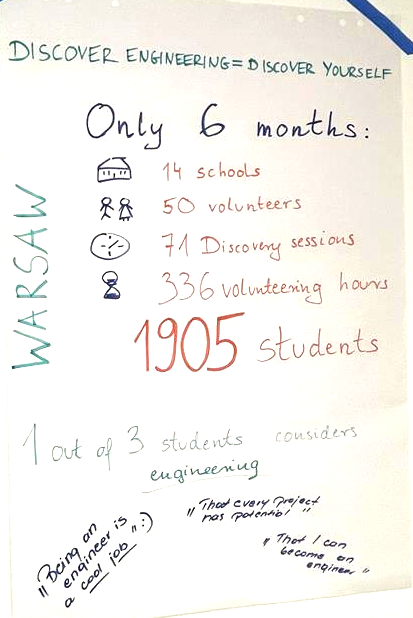 DISCOVER ENGINEERING = DISCOVER YOURSELF
Only 6 months:
14 schools
50 volunteers
71 Discovery sessions
336 volunteering hours
1905 students
WARSAW
1 out of 3 students considers
engineering
"Being an
engineer is
a cool job" :)
"That every project
has potential"
"That I can
become an
engineer"